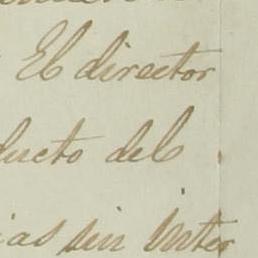 El director
ducto del
ias sin inter